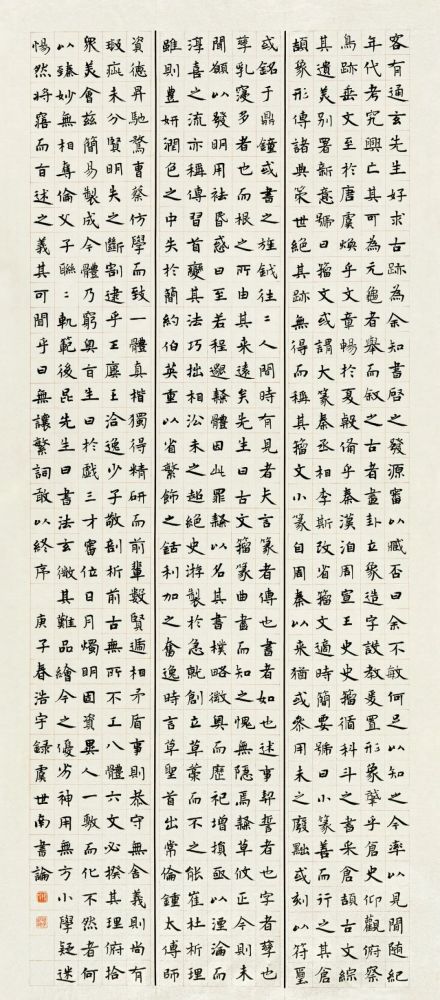 客有通玄先生好求古跡為余知書啓之發源審以臧否曰余不敏何足以知之今率以見聞隨紀
年代考究興亡其可為元龜者舉而敘之古者畫卦立象造字設教爰置形象肇乎倉史仰觀俯察
鳥跡垂文至於唐虞煥乎文章暢於夏殷俻乎秦漢洎周宣王史史籀循科斗之書采倉頡古文綜
其遺美別署新意號曰籀文或謂大篆秦丞相李斯改省籀文適時簡要號曰小篆善而行之其倉
頡象形傳諸典策世絕其跡無得而稱其籀文小篆自周秦以來猶或參用未之廢黜或刻以符璽
或銘于鼎鐘或書之旌鉞往〻人間時有見者夫言篆者傳也書者如也述事契誓者也字者孳也
孳乳寖多者也而根之所由其來遠矣先生曰古文籀篆曲盡而知之愧無隱焉隸草攸正今則未
聞願以發明用祛昏惑曰至若程邈隸體因此罪隸以名其書樸略微奥而歷祀增損亟以湮淪而
淳喜之流亦稱傳習首變其法巧拙相沿未之超絕史游製於急就創立草藁而不之能崔杜析理
雖則豊妍潤色之中失於簡約伯英重以省繁飾之銛利加之奮逸時言草聖首出常倫鍾太傅師
資德昇馳騖曹蔡仿學而致一體真楷獨得精研而前輩數賢遞相矛盾事則恭守無舍義則尚有
瑕疵未分賢明失之斷割逮乎王廙王洽逸少子敬剖析前古無所不工八體六文必揆其理俯拾
衆美會兹簡易製成今體乃窮奥旨生曰於戲三才審位日月燭明固資異人一敷而化不然者何
以臻妙無相奪倫父子聯〻軌範後昆先生曰書法玄微其難品繪今之優劣神用無方小學疑迷
惕然將寤而旨述之義其可聞乎曰無讓繁詞敢以終序 庚子春浩宇録虞世南書論